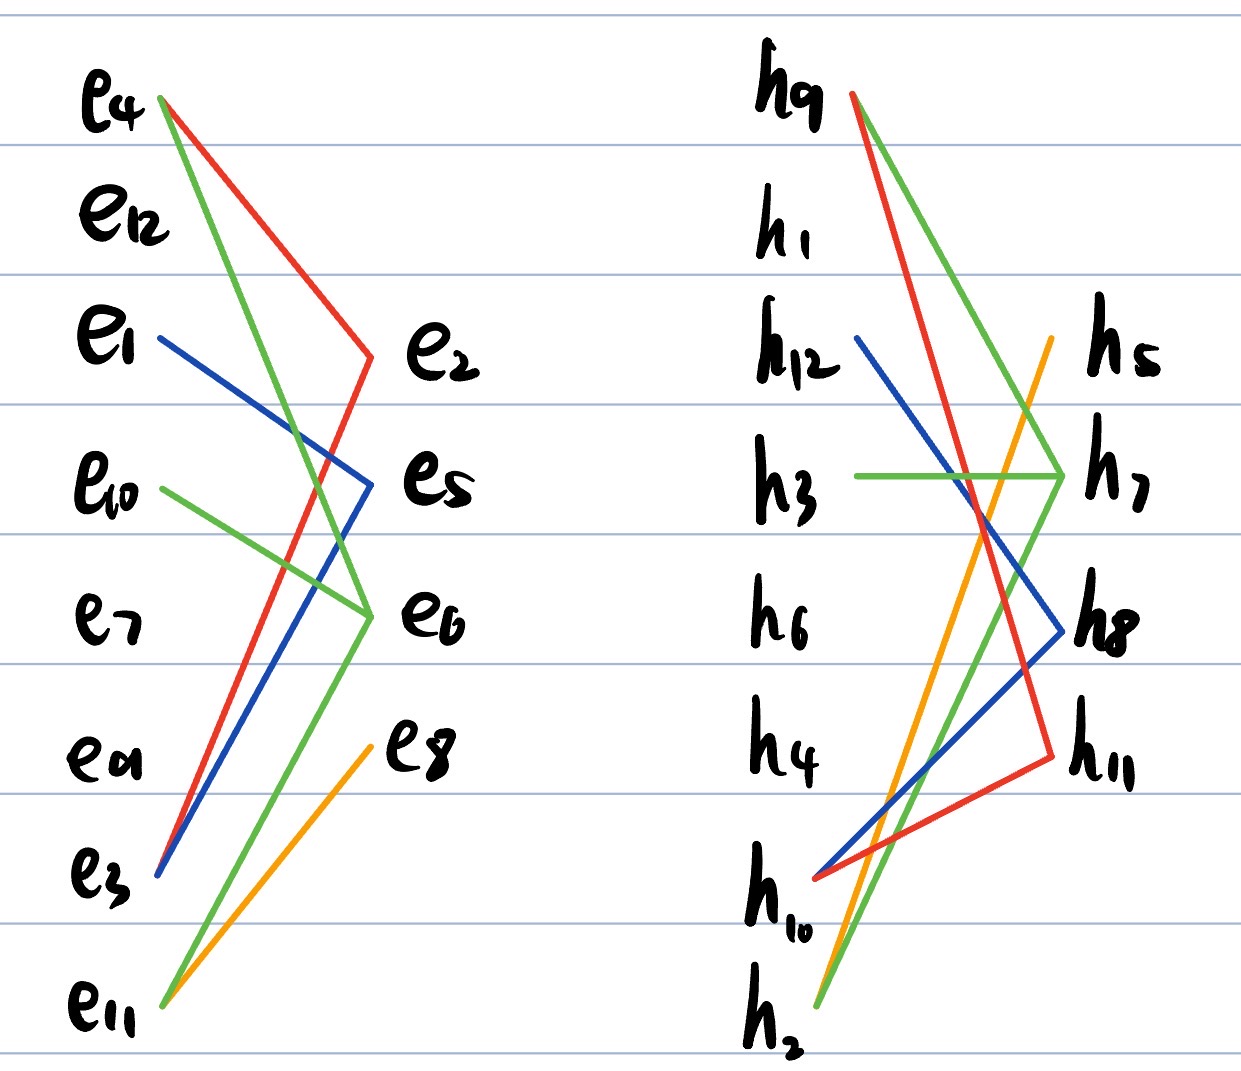 e4
e12
e1
e10
e7
e9
e3
e11
e2
e5
e6
e8
h9
h1
h12
h3
h6
h4
h10
h2
h5
h7
h8
h11